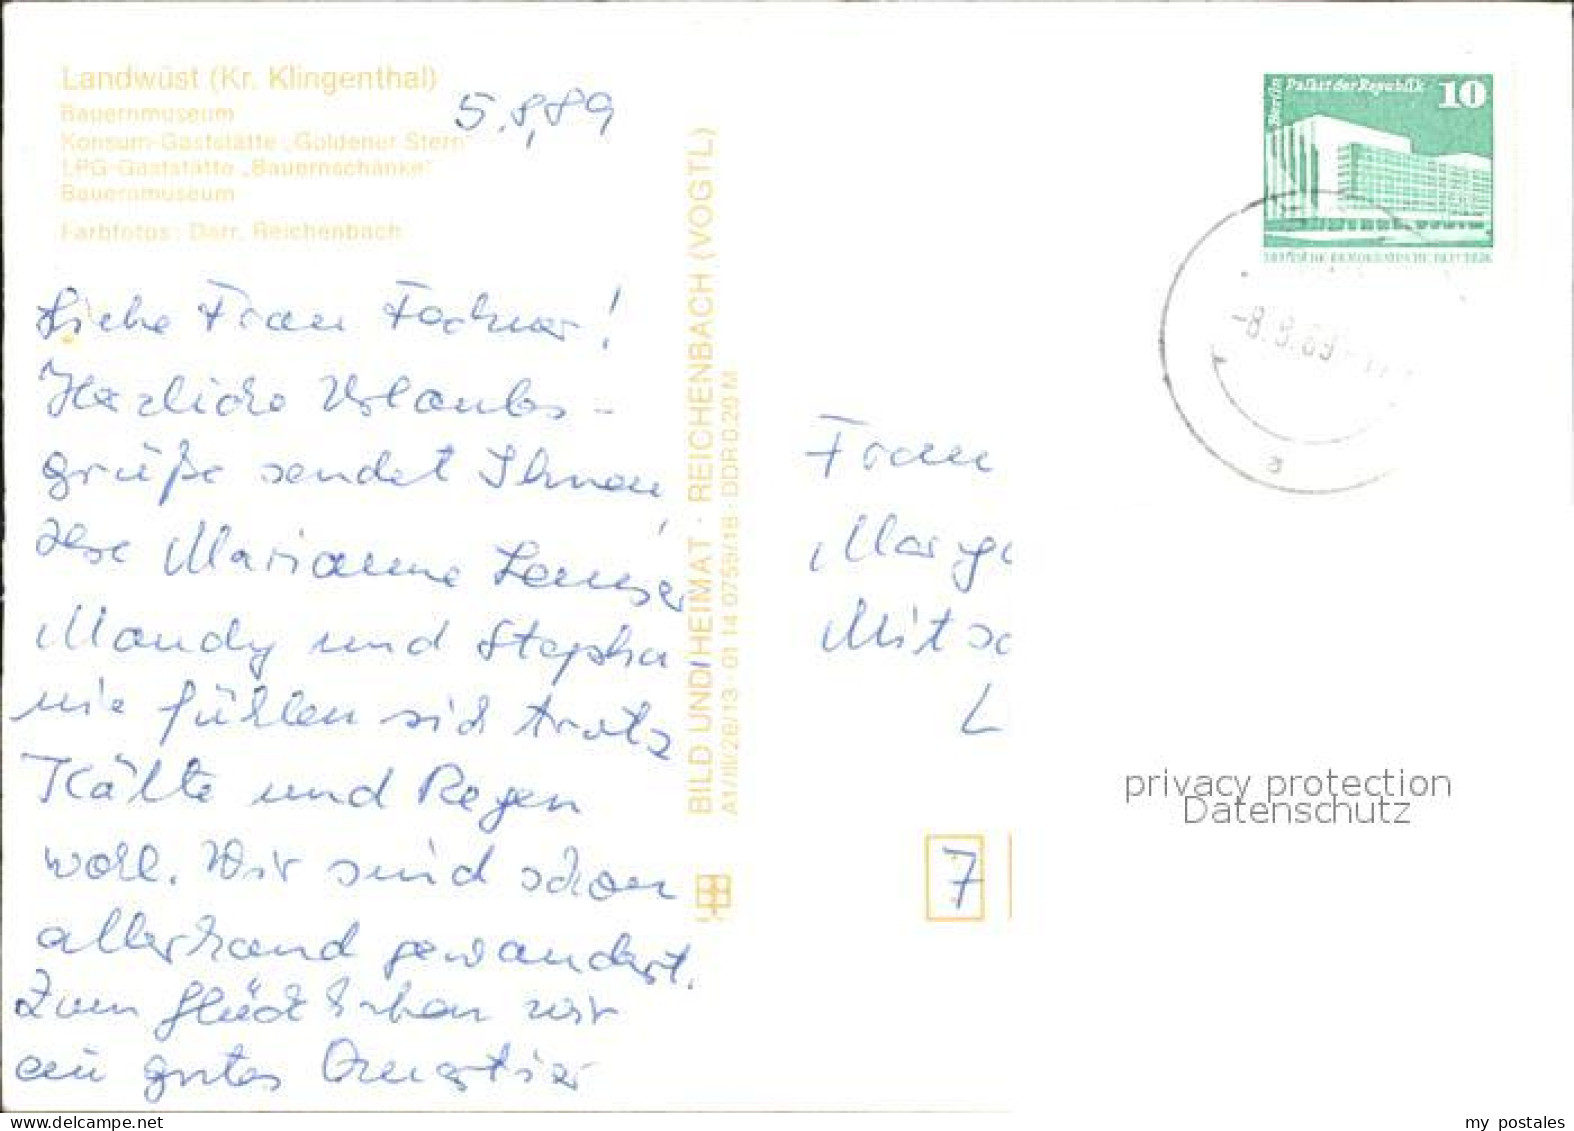 Landwüst (Kr. Klingenthal)
Bauernmuseum
Konsum-Gaststätte „Goldener Stern"
LPG-Gaststätte „Bauernschänke"
Bauernmuseum
Farbfotos: Darr, Reichenbach
5.8.89
Liebe Frau
Herzliche Urlaubs-
grüße sendet Ihnen,
Ihre Marianne
Mandy und Stepha
nie fühlen sich trotz
Kälte und Regen
wohl. Wir sind schon
allerhand gewandert.
Zum Glück haben wir
ein gutes Quartier
BILD UND HEIMAT · REICHENBACH (VOGTL)
A1/III/26/13 · 01 14 0759/18 · DDR 0,20 M
Berlin
Palast der Republik 10
DEUTSCHE DEMOKRATISCHE REPUBLIK
-8.8.89
a
Frau
Marg
Mitsc
L
7
privacy protection
Datenschutz
my postales